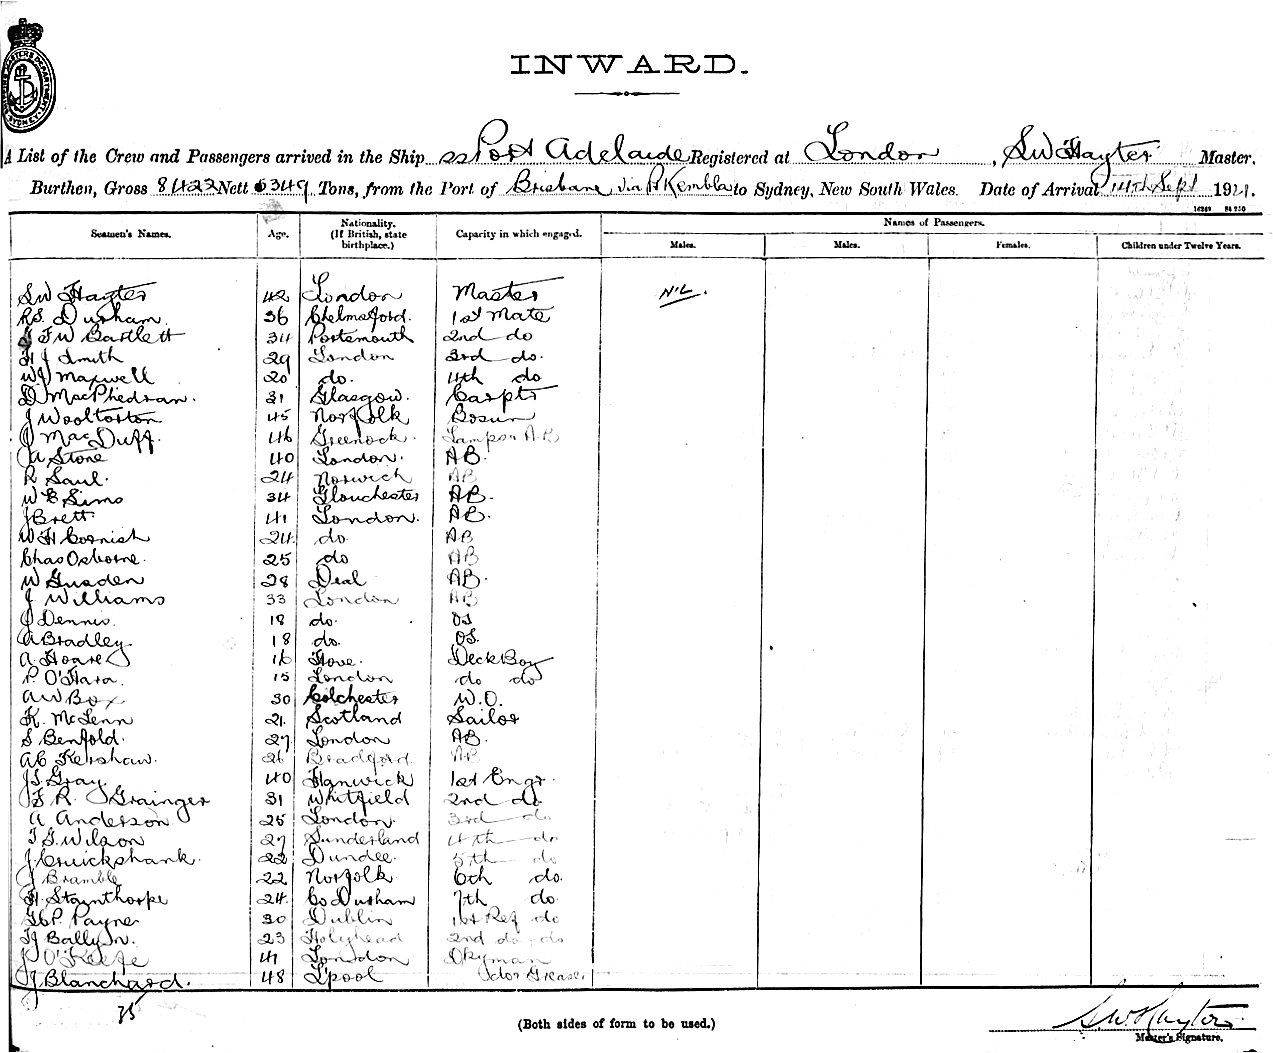 INWARD.
A List of the Crew and Passengers arrived in the Ship ss Port Adelaide Registered at London, S W Hayter Master,
Burthen, Gross 8422 Nett 5349 Tons, from the Port of Brisbane via Pt Kembla to Sydney, New South Wales. Date of Arrival 14th Sept 1921.
Seamen's Names. Age. Nationality. (If British, state birthplace.) Capacity in which engaged. Names of Passengers.
Males. Males. Females. Children under Twelve Years.
S W Hayter 42 London Master Nil.
R S. Durham 36 Chelmsford. 1st Mate
F W Bartlett 34 Portsmouth 2nd do
H J Smith 29 London 3rd do.
W J Maxwell 20 do. 4th do
D. MacPhedran. 31 Glasgow. Carptr
J Woolterton 45 Norfolk Bosun
J MacDuff. 46 Greenock. Lamps & AB
J A Stone 40 London. AB.
R Saul. 24 Norwich AB
W E Sims 34 Glouchester AB.
J Brett 41 London. AB.
W H Cornish 24 do. AB
Chas Osborne. 25 do AB
W Gusden 28 Deal AB.
J Williams 33 London AB
J Dennis. 18 do. OS
A Bradley. 18 do. OS.
A. Hoare 16 Hove. Deck Boy
P. O'Hara. 15 London do do
A W Box 30 Colchester W.O.
K. McLenn 21. Scotland Sailor
S Benfold. 27 London AB.
A C Kershaw. 26 Bradford. AB
J S Gray. 40 Hanwick 1st Engr.
F R. Grainger 31 Whitfield 2nd do
A Anderson 25 London. 3rd do
T G. Wilson 27 Sunderland 4th do
J Cruickshank. 22 Dundee. 5th do
J Bramble 22 Norfolk 6th do.
H. Stainthorpe 24. Co Durham 7th do.
G C P. Payne 30 Dublin 1st Ref do
T J Bally Jn. 23 Holyhead 2nd do do
J O'Keefe 41 London Dkyman
J Blanchard. 48 L'pool do & Grease.
35
(Both sides of form to be used.)
S. W. Hayter
Master's Signature.